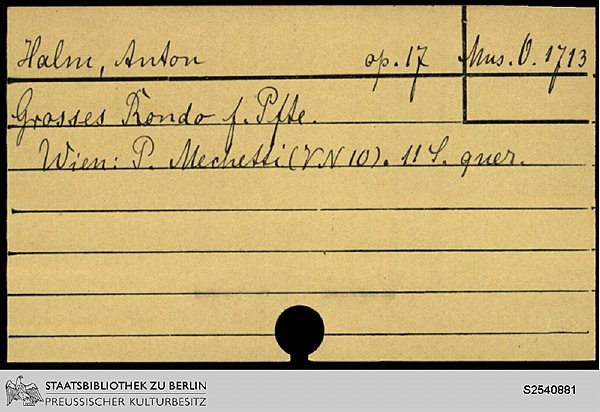 Halm, Anton op. 17 Mus. O. 1713
Grosses Rondo f. Pfte.
Wien: P. Mechetti (VN 10). 11 S. quer.
STAATSBIBLIOTHEK ZU BERLIN
PREUSSISCHER KULTURBESITZ
S2540881